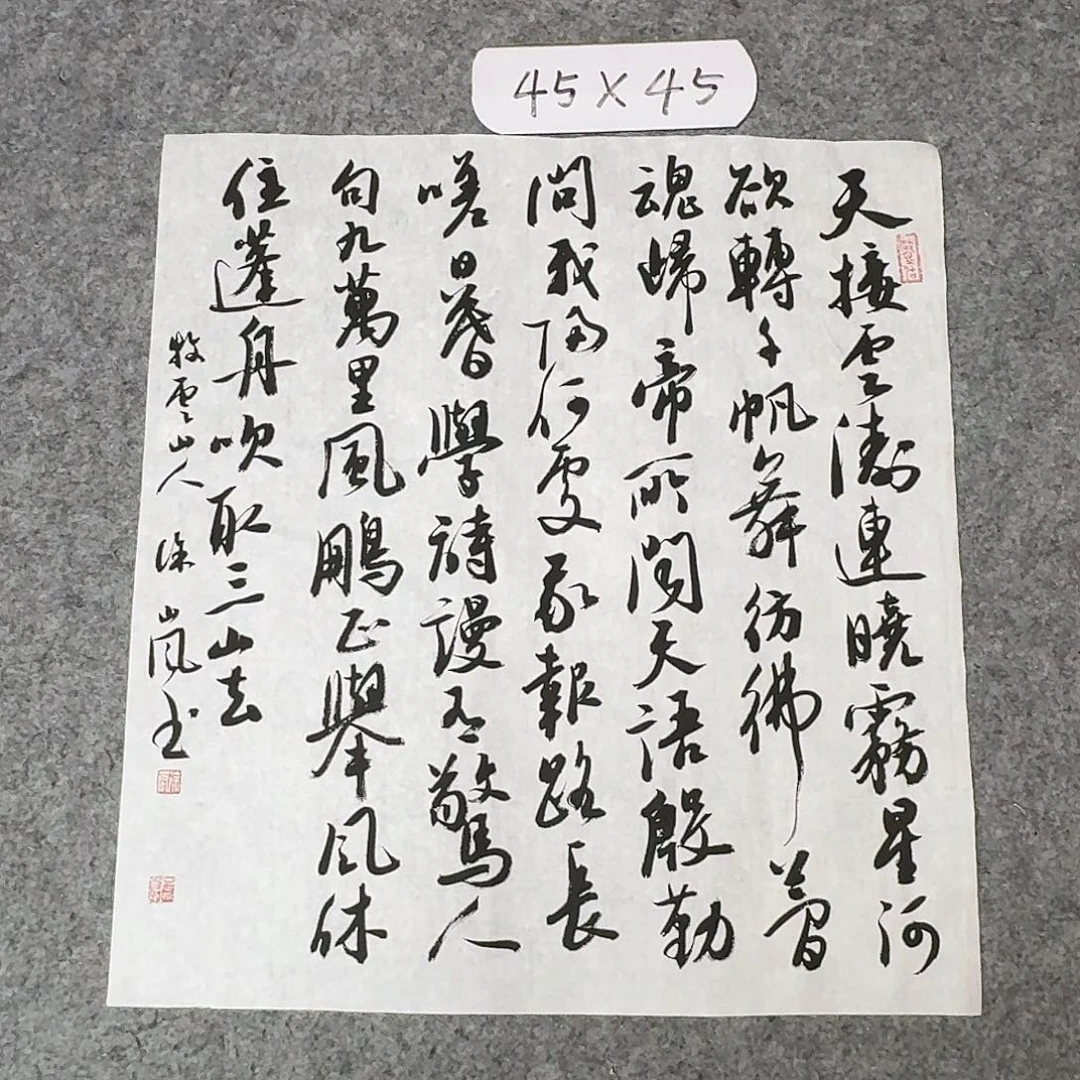 45×45
天接雲濤連曉霧星河
欲轉千帆舞彷彿夢
魂歸帝所聞天語殷勤
問我歸何處我報路長
嗟日暮學詩謾有驚人
句九萬里風鵬正舉風休
住蓬舟吹取三山去
牧雲山人徐嵐书